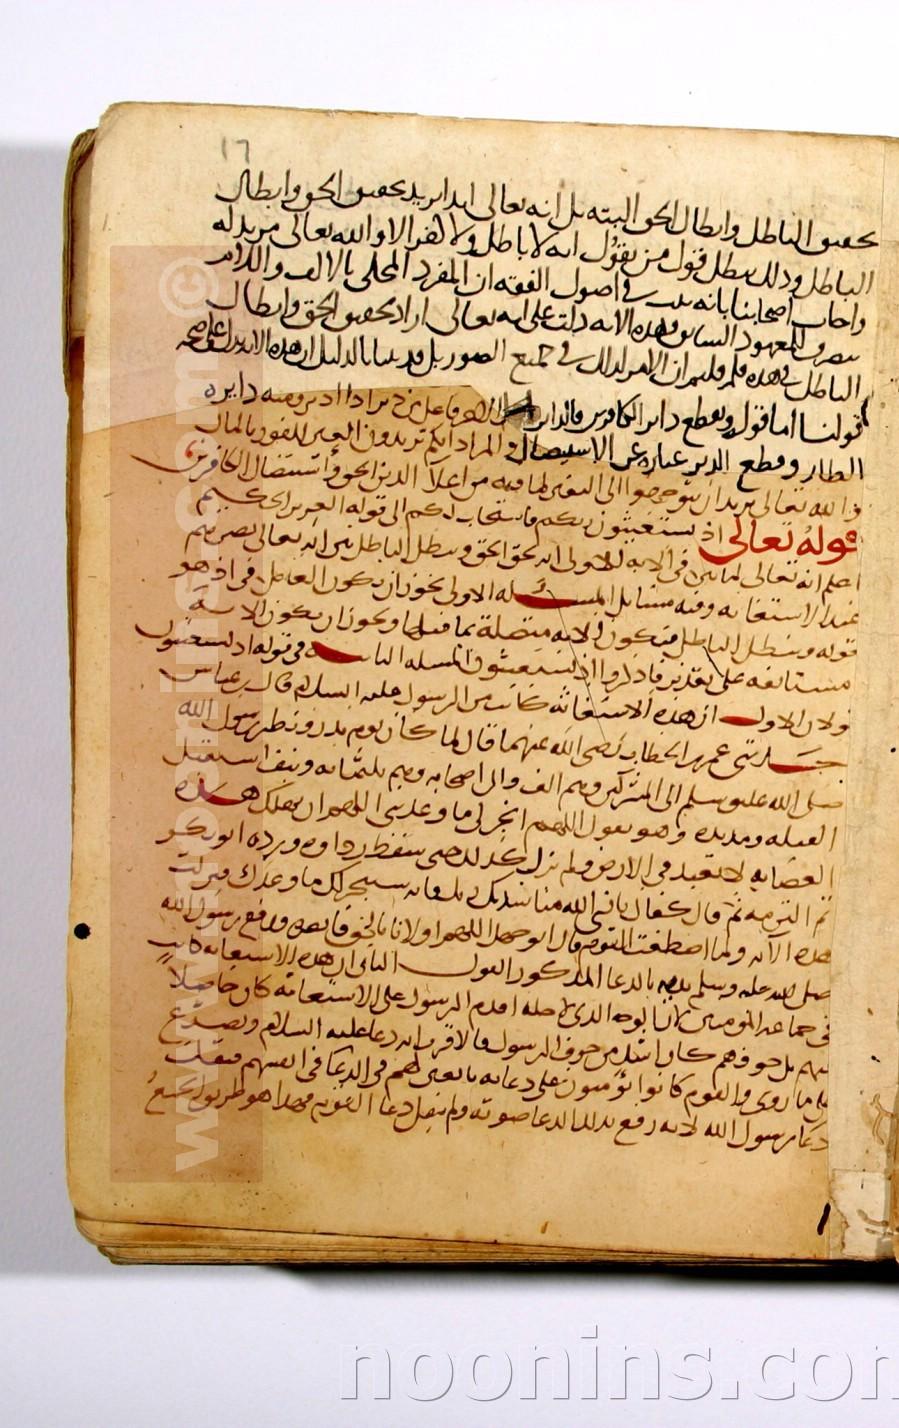 ١٦
تحقيق الباطل وابطال الحق البته بل انه تعالى ابدا يريد تحقيق الحق وابطال
الباطل وذلك يبطل قول من يقول انه لا باطل ولا كفر الا والله تعالى مريد له
واجاب اصحابنا بانه ثبت في اصول الفقه ان المفرد المحلى بالالف واللام
ينصرف للمعهود السابق وهذه الايه دلت على انه تعالى اراد تحقيق الحق وابطال
الباطل في هذه فلم قلتم ان الامر كذلك في جميع الصور بل قد بينا بالدليل ان هذه الايه تدل على صحه
قولنا اما قوله ويقطع دابر الكافرين فالدابر الاخر فاعل من دبر اذا ادبر ومنه دابره
الطار وقطع الدابر عباره عن الاستيصال والمراد انكم تريدون العير للفوز بالمال
والله تعالى يريد ان تتوجهوا الى النفير لما فيه من اعلا الدين الحق واستئصال الكافرين
قوله تعالى اذ تستغيثون ربكم فاستجاب لكم الى قوله العزيز الحكيم
اعلم انه تعالى لما بين في الايه الاولى انه يحق الحق ويبطل الباطل بين انه تعالى نصرهم
عند الاستغاثه وفيه مسايل المسئله الاولى يجوز ان يكون العامل في اذ هو
قوله ويبطل الباطل فتكون الايه متصلة بما قبلها ويجوز ان يكون الايه
مستانفه على تقدير واذكروا اذ تستغيثون المسله الثانيه في قوله اذ تستغيثون
قولان الاول ان هذه الاستغاثه كانت من الرسول عليه السلام قال ابن عباس
حدثنى عمر بن الخطاب رضى الله عنهما قال لما كان يوم بدر ونظر رسول الله
صلى الله عليه وسلم الى المشركين وهم الف والى اصحابه وهم ثلثمائه ونيف استقبل
القبله ومد يده وهو يقول اللهم انجز لى ما وعدتنى اللهم ان تهلك هذه
العصابه لا تعبد في الارض ولم يزل كذلك حتى سقط رداوه ورده ابو بكر
ثم التزمه ثم قال كفاك يا نبى الله مناشدتك ربك فانه سينجز لك ما وعدك فنزلت
هذه الآيه ولما اصطفت القوم قال ابو جهل اللهم اولانا بالحق فانصره ورفع رسول الله
صلى الله عليه وسلم يده بالدعا المذكور القول الثانى ان هذه الاستغاثه كانت
في جماعه المؤمنين لانا الوجه الذى لاجله اقدم الرسول على الاستغاثه كان حاصلا
فيهم بل خوفهم كان اشد من خوف الرسول فالاقرب انه دعا عليه السلام وتضرع
على ما روى والقوم كانوا يؤمنون على دعايه تابعين لهم في الدعا في انفسهم فنقل
دعا رسول الله لانه رفع بذلك الدعا صوته ولم ينقل دعا القوم فهذا هو طريق الجمع
www.noonins.com ©
noonins.com